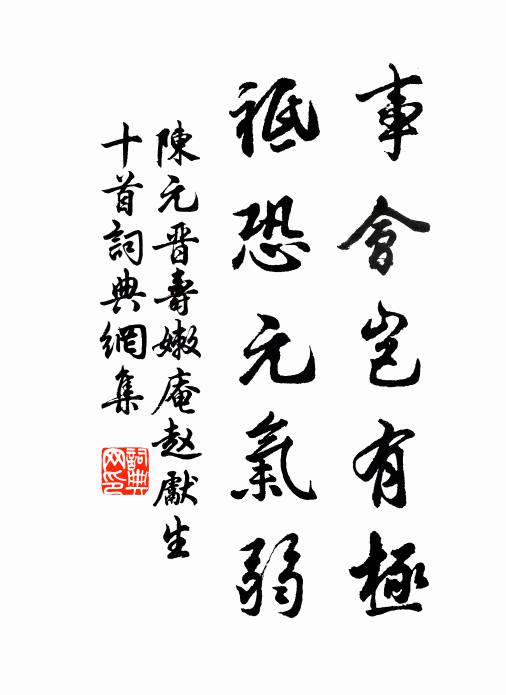 事會豈有極
祗恐元氣弱
陳元晋壽嫩庵赵獻生
十首詞典網集
詞典网印